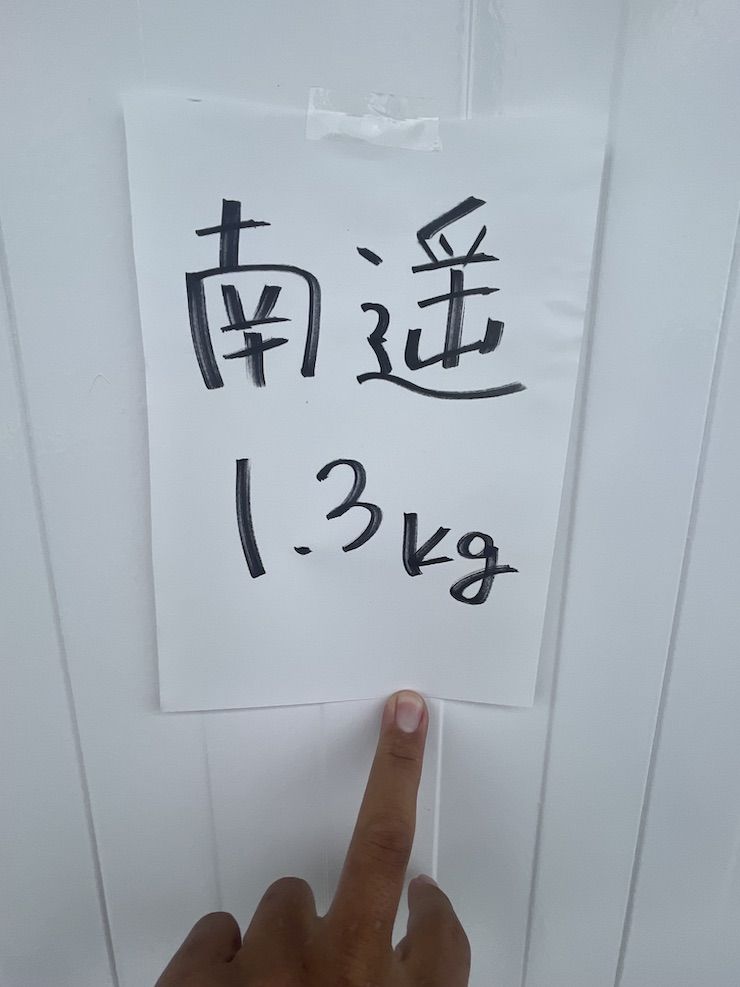 南遥
1.3kg